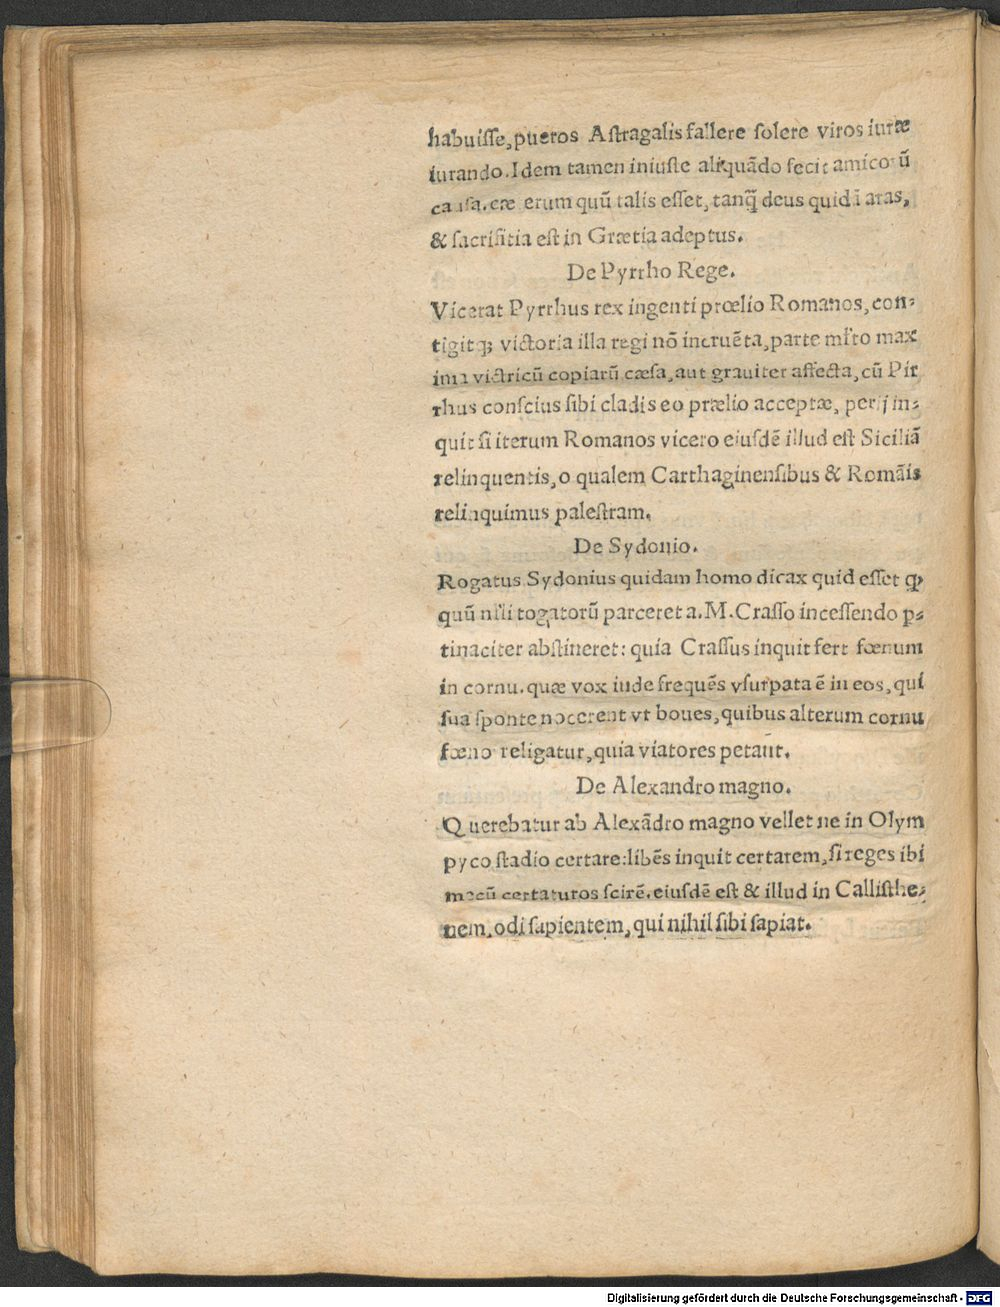 habuisse, pueros Astragalis fallere solere viros iure
iurando. Idem tamen iniuste aliquādo fecit amicorū
causa. cæ erum quū talis esset, tanq̄ deus quidā aras,
& sacrifitia est in Grætia adeptus.
De Pyrrho Rege.
Vicerat Pyrrhus rex ingenti prœlio Romanos, con⸗
tigitq; victoria illa regi nō incruēta, parte mr̄to max
ima victricū copiarū cæsa, aut grauiter affecta, cū Pir
rhus conscius sibi cladis eo prælio acceptæ, perij in⸗
quit si iterum Romanos vicero eiusdē illud est Siciliā
relinquentis, o qualem Carthaginensibus & Romāis
relinquimus palestram.
De Sydonio.
Rogatus Sydonius quidam homo dicax quid esset ꝙ
quū nisi togatorū parceret a. M. Crasso incessendo p⸗
tinaciter abstineret: quia Crassus inquit fert fœnum
in cornu. quæ vox inde frequēs vsurpata ē in eos, qui
sua sponte nocerent vt boues, quibus alterum cornu
fœno religatur, quia viatores petant̄.
De Alexandro magno.
Querebatur ab Alexādro magno vellet ne in Olym
pyco stadio certare: libēs inquit certarem, si reges ibi
mecū certaturos scirē. eiusdē est & illud in Callisthe⸗
nem, odi sapientem, qui nihil sibi sapiat.
Digitalisierung gefördert durch die Deutsche Forschungsgemeinschaft - DFG